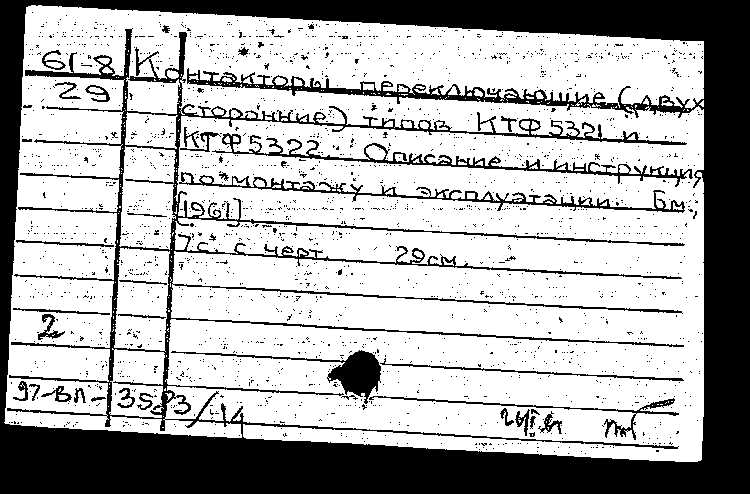 61-8 Контакторы переключающие (двух
29 сторонние) типов КТФ 5321 и
КТФ 5322. Описание и инструкция
по монтажу и эксплуатации. Бм.,
[1961].
7с. с черт. 29см.
2
97-ВЛ-3523/14